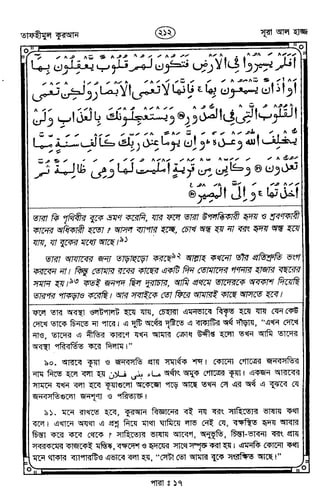 তাফহীমুল কুরআন
২১২
সূরা আল হাজ্জ
أَفَلَمْ يَسِيرُوا فِي الْأَرْضِ فَتَكُونَ لَهُمْ قُلُوبٌ يَعْقِلُونَ بِهَا
أَوْ آذَانٌ يَسْمَعُونَ بِهَا ۚ فَإِنَّهَا لَا تَعْمَى الْأَبْصَارُ وَلَٰكِنْ تَعْمَى
الْقُلُوبُ الَّتِي فِي الصُّدُورِ ۝ وَيَسْتَعْجِلُونَكَ بِالْعَذَابِ وَلَنْ
يُخْلِفَ اللَّهُ وَعْدَهُ ۚ وَإِنَّ يَوْمًا عِنْدَ رَبِّكَ كَأَلْفِ سَنَةٍ مِمَّا
تَعُدُّونَ ۝ وَكَأَيِّنْ مِنْ قَرْيَةٍ أَمْلَيْتُ لَهَا وَهِيَ ظَالِمَةٌ ثُمَّ
أَخَذْتُهَا ۚ وَإِلَيَّ الْمَصِيرُ ۝
তারা কি পৃথিবীর বুকে ভ্রমণ করেনি, যার ফলে তারা উপলব্ধিকারী হৃদয় ও শ্রবণকারী
কানের অধিকারী হতো? আসল ব্যাপার হচ্ছে, চোখ অন্ধ হয় না বরং হৃদয় অন্ধ হয়ে
যায়, যা বুকের মধ্যে আছে।৯১
তারা আযাবের জন্য তাড়াহুড়ো করছে৯২ আল্লাহ কখনো তাঁর প্রতিশ্রুতি ভংগ
করবেন না। কিন্তু তোমার রবের কাছের একটি দিন তোমাদের গণনার হাজার বছরের
সমান হয়।৯৩ কতই জনপদ ছিল দুরাচার, আমি প্রথমে তাদেরকে অবকাশ দিয়েছি
তারপর পাকড়াও করেছি। আর সবাইকে তো ফিরে আমারই কাছে আসতে হবে।
ফলে তার অবস্থা ওলটপালট হয়ে যায়, চেহারা এমনভাবে বিকৃত হয়ে যায় যেন কেউ
দেখে তাকে চিনতে না পারে। এ দুটি অর্থের দৃষ্টিতে এ বাক্যটির অর্থ দাঁড়ায়, "এখন দেখে
নাও, তাদের এ নীতির কারণে যখন আমার ক্রোধ উদ্দীপ্ত হলো তখন আমি তাদের
অবস্থা পরিবর্তিত করে দিলাম।"
৯০. আরবে কূয়া ও জনবসতি প্রায় সমার্থক শব্দ। কোনো গোত্রের জনবসতির
নাম নিতে হলে বলা হয় ماء بنى فلان অর্থাৎ অমুক গোত্রের কূয়া। একজন আরবের
সামনে যখন বলা হবে কূয়াগুলো অকেজো পড়ে আছে তখন সে এর অর্থ এ বুঝবে যে
জনবসতিগুলো জনশূন্য ও পরিত্যক্ত।
৯১. মনে রাখতে হবে, কুরআন বিজ্ঞানের বই নয় বরং সাহিত্যের ভাষায় কথা
বলে। এখানে অযথা এ প্রশ্ন নিয়ে মাথা ঘামিয়ে লাভ নেই যে, বক্ষস্থিত হৃদয় আবার
চিন্তা করে কবে থেকে? সাহিত্যের ভাষায় আবেগ, অনুভূতি, চিন্তা-ভাবনা বরং প্রায়
সবরকমের কাজকেই মস্তিষ্ক, বক্ষদেশ ও হৃদয়ের সাথে সম্পৃক্ত করা হয়। এমনকি কোনো কথা
মনে থাকার ব্যাপারটিও এভাবে বলা হয়, "সেটা তো আমার বুকে সংরক্ষিত আছে।"
পারা : ১৭